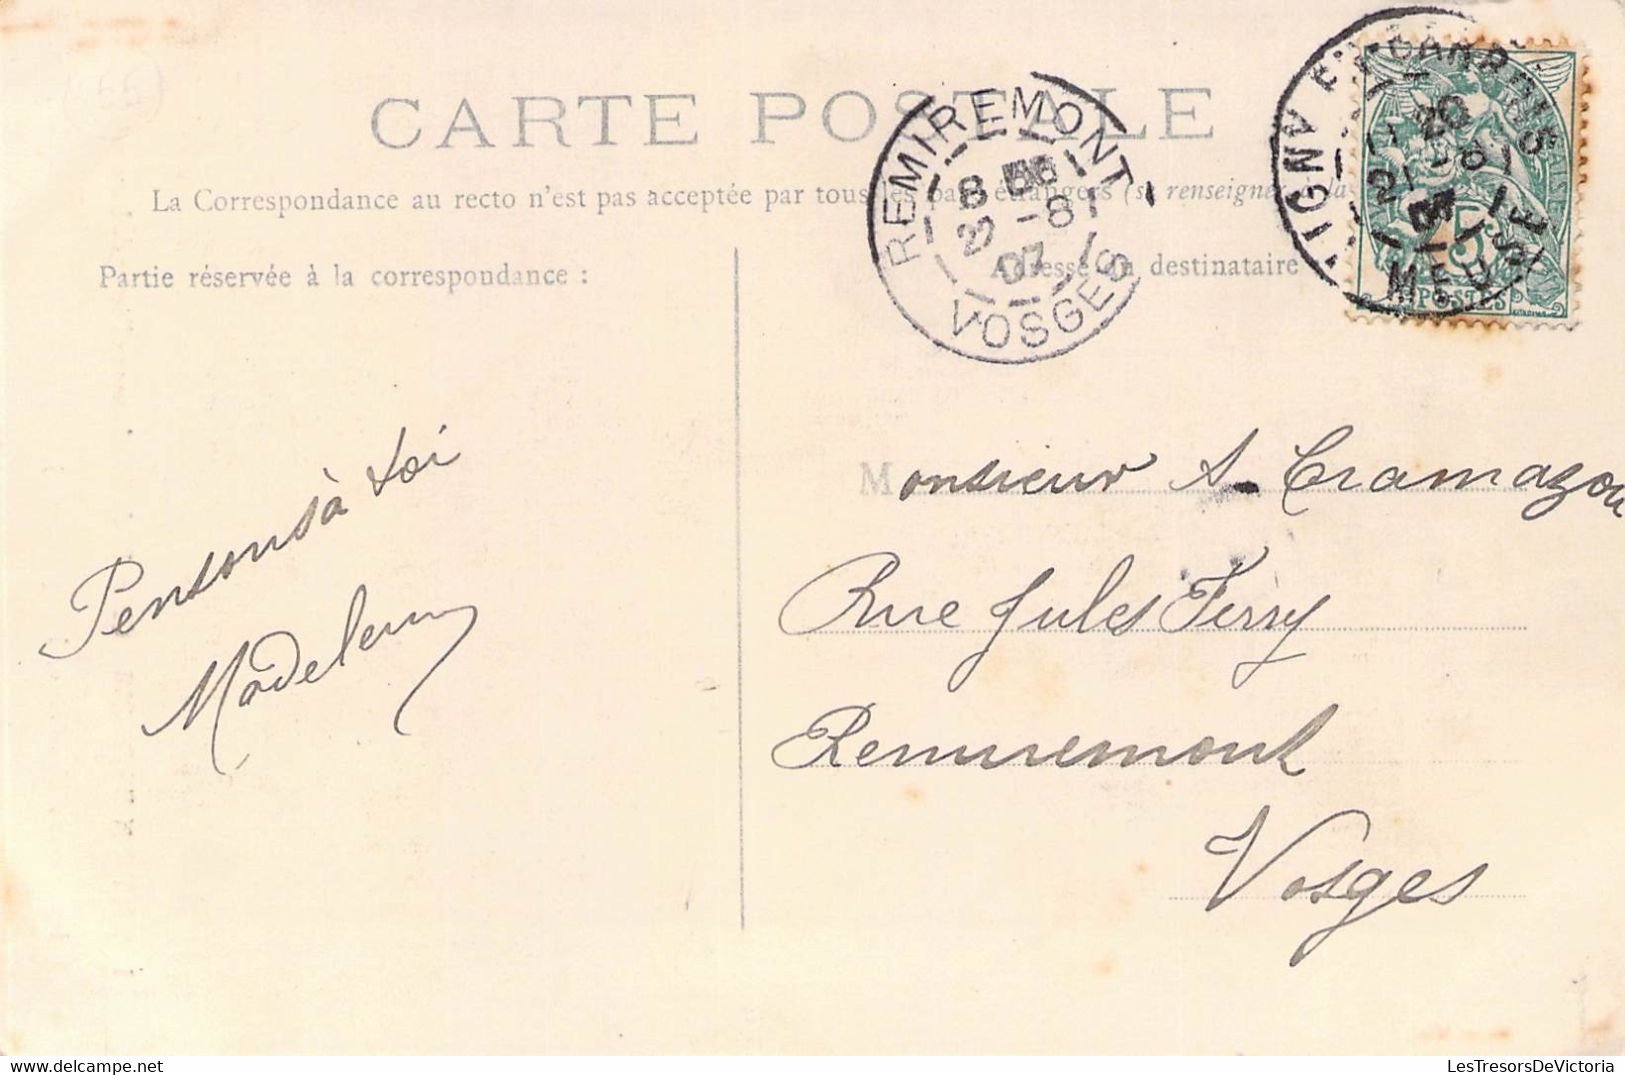 CARTE POSTALE
La Correspondance au recto n'est pas acceptée par tous les pays étrangers (se renseigner à la
Partie réservée à la correspondance :
Adresse du destinataire
REMIREMONT
8
22 -8
07
VOSGES
LIGNY EN-BARROIS
20
21 -8
MEUSE
5
POSTES
Pensons à toi
Madeleine
Monsieur A. Cramazou
Rue Jules Ferry
Remiremont
Vosges
LesTresorsDeVictoria